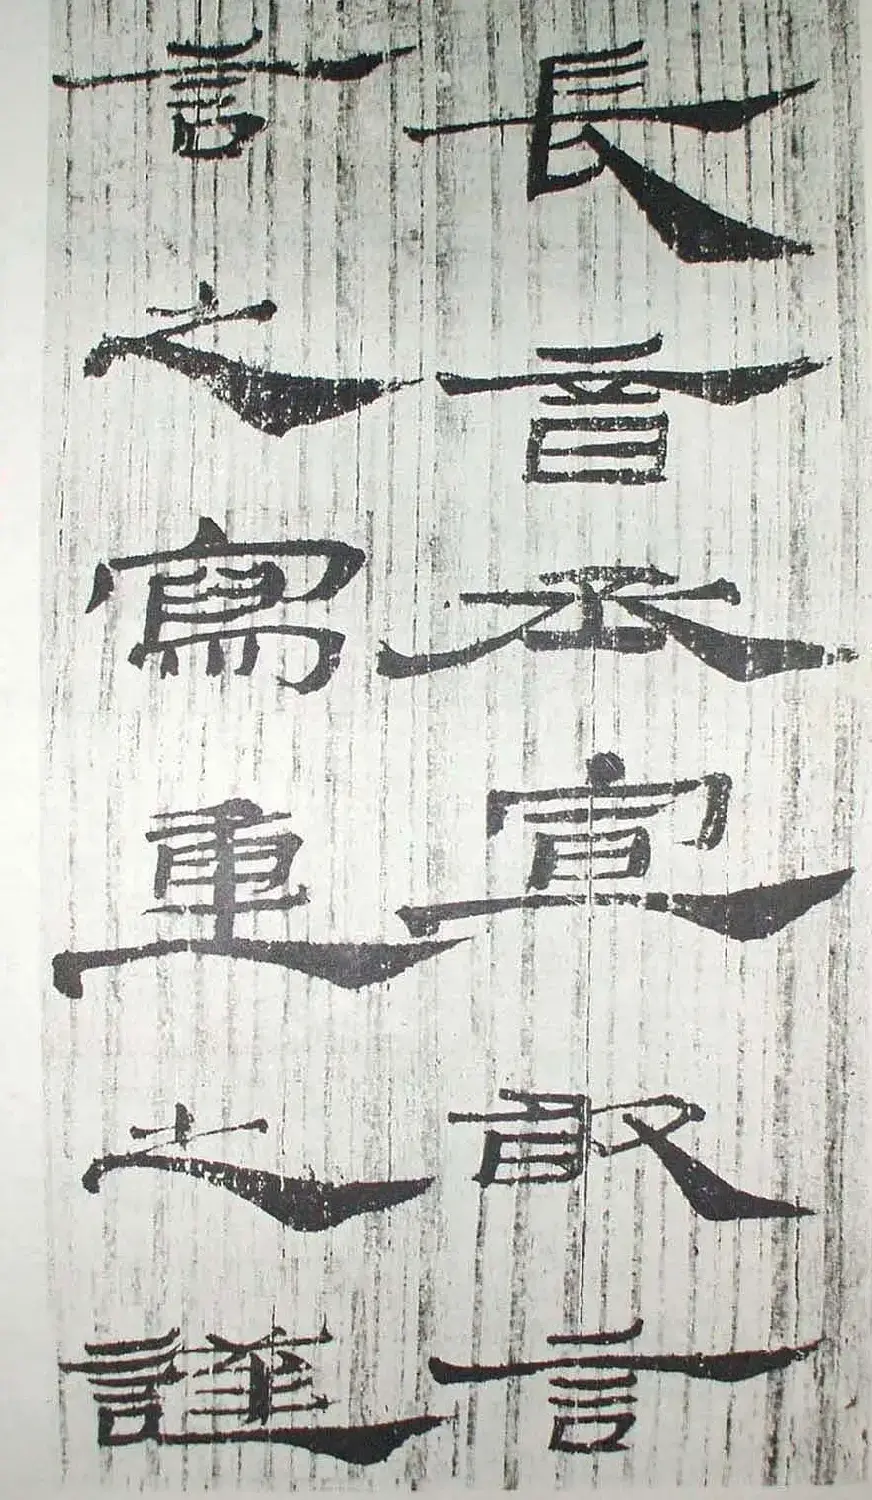 長音丞宣敢言
言之寫重之謹